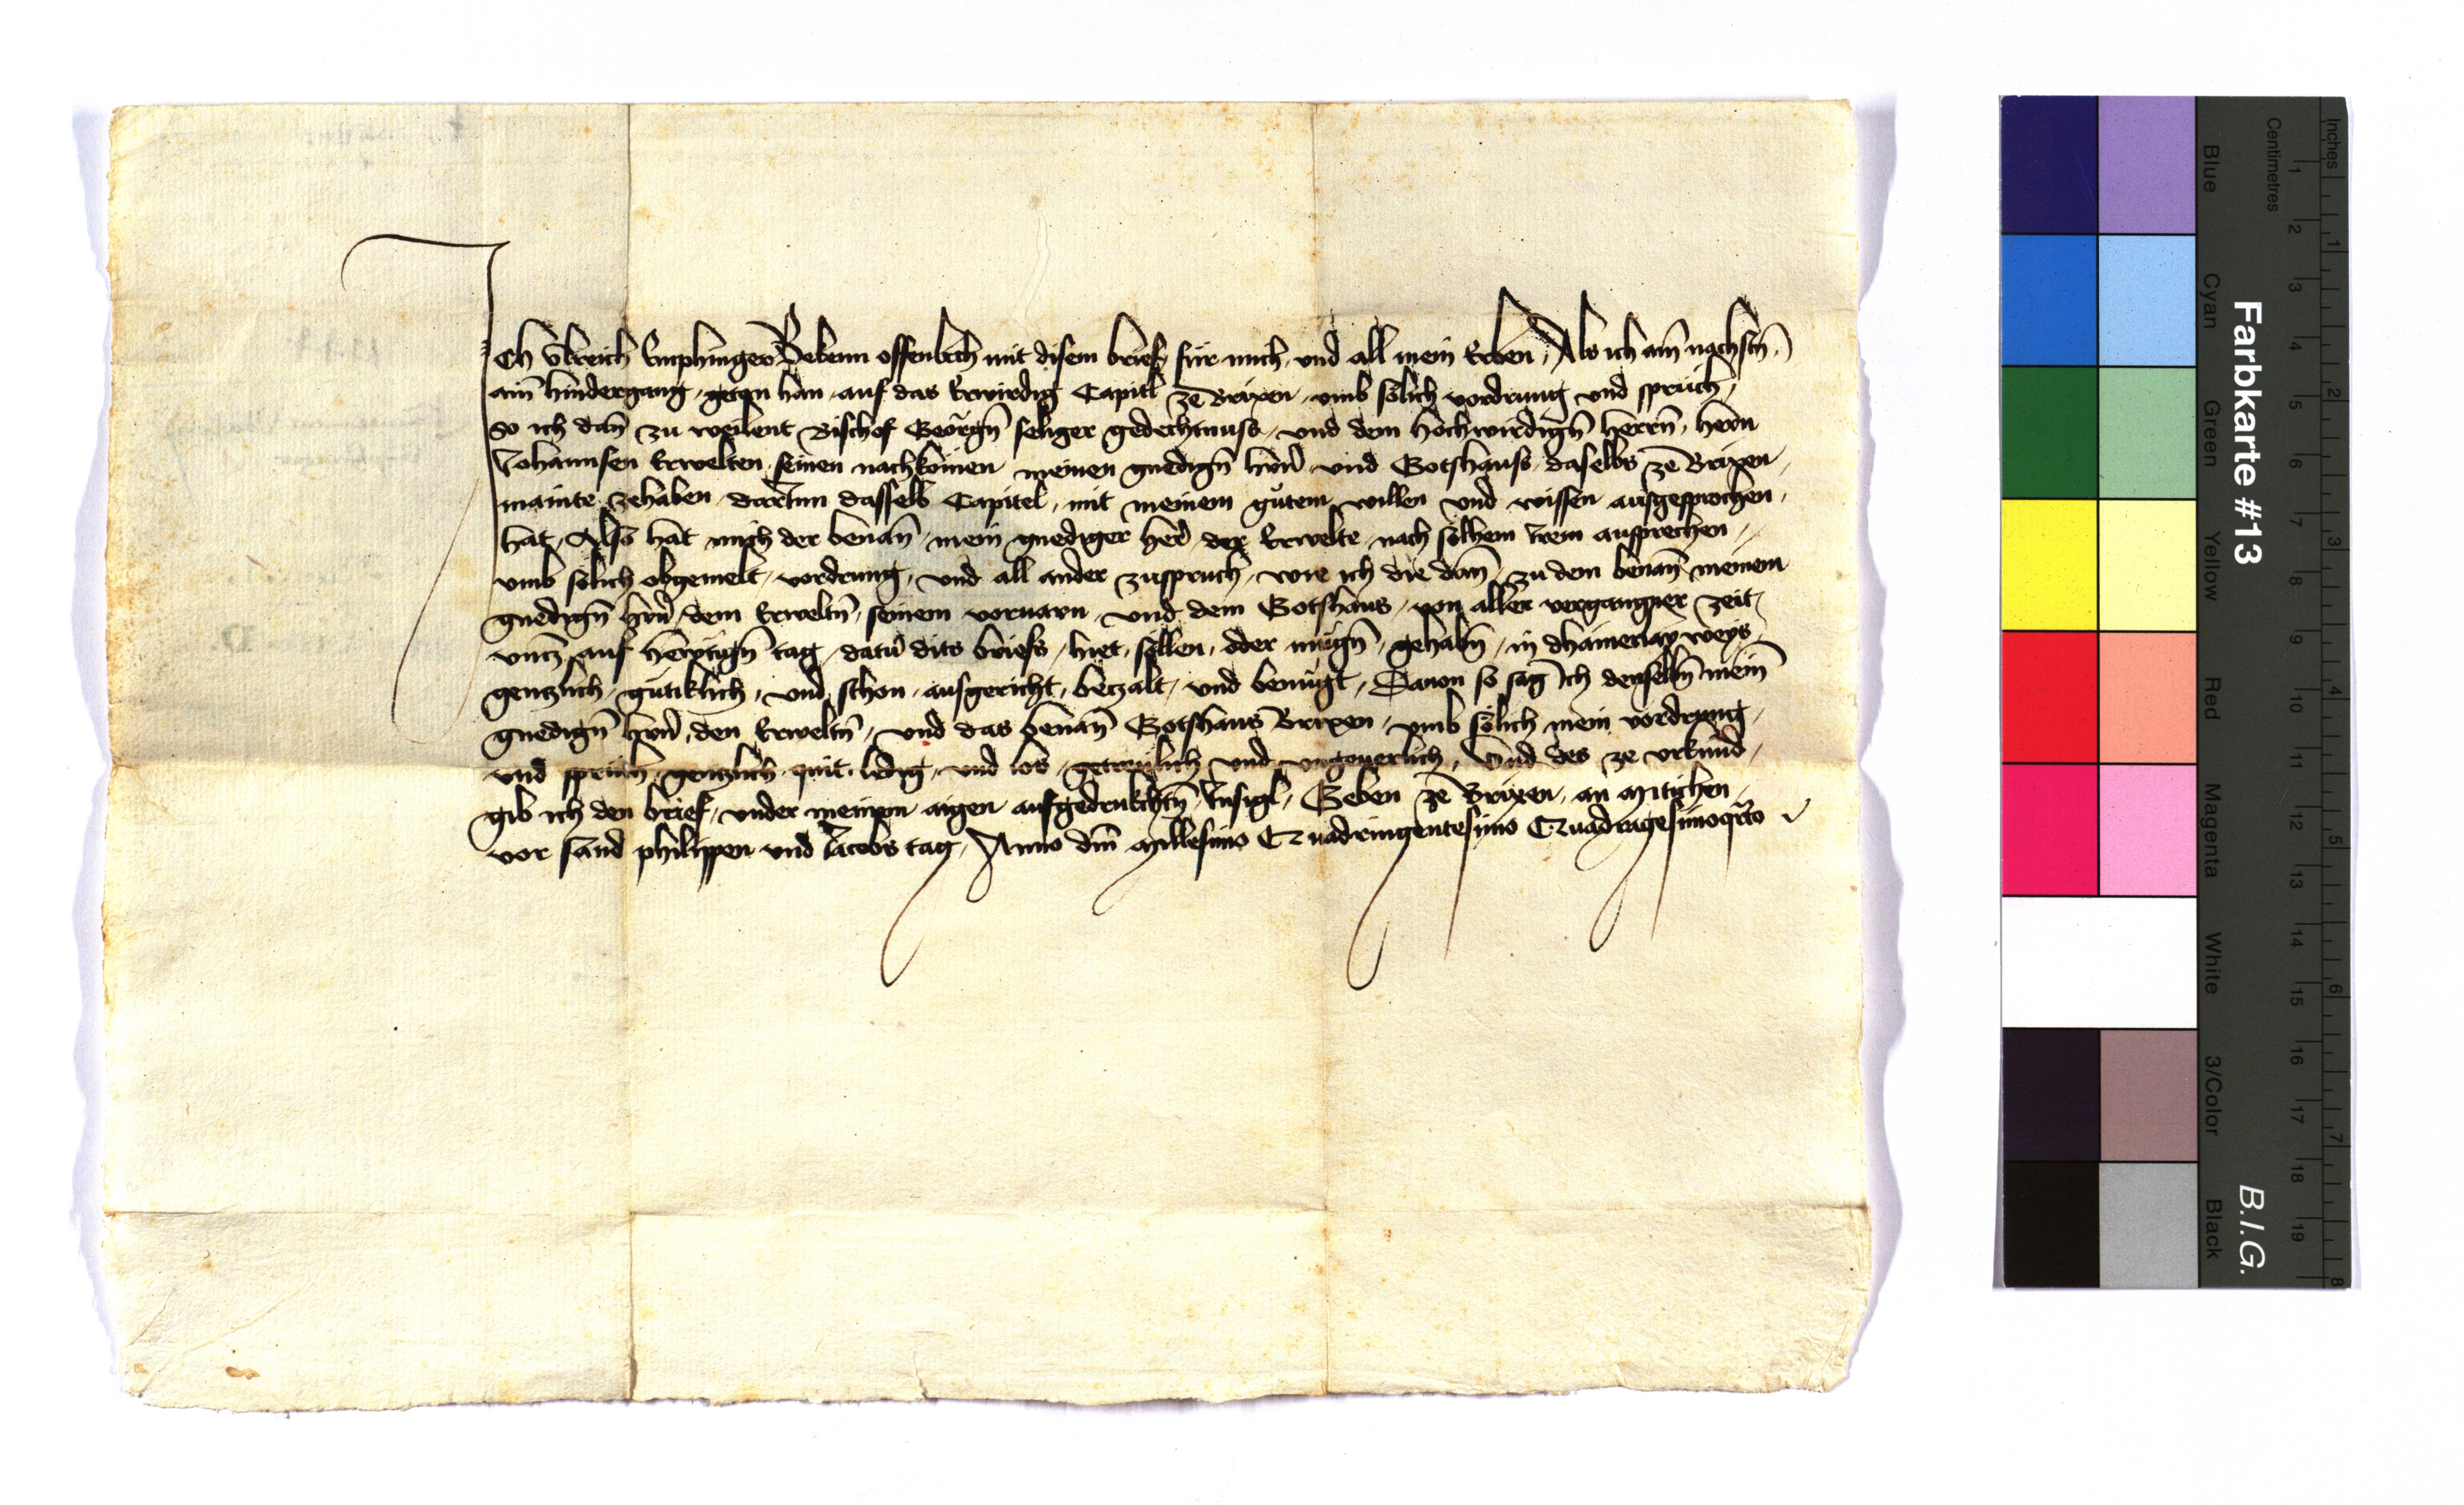 Ich Ulreich Emphinger Bekenn offenlich mit disem brief, für mich, und all mein Erben, Als ich am̄ nachstn̄,
ain̄ hindergang, getan han, auf das Erwirdig Capitl ze Brixen, umb sölich vordrung und sprüch,
So ich dan̄ zu weilent Bischof Georgn̄ seliger gedechtnuss, und dem hochwirdign̄ herrn̄, hern
Johannsen Erwelten, seinen nachkomen, meinen gnedign̄ hrn̄, und Gotshauss, daselbs ze Brixen,
mainte zehaben, darum̄ dasselb Capitel, mit meinem gůtem willen und wissen ausgesprochen,
hat, Also hat mich der benan̄, mein gnediger her̄, der Erwelte, nach sölhem Irem ausprechen,
umb sölich obgemelt, vordrung, und all ander zuspruch, wie ich die dan̄, zu dem benan̄ meinem
gnedign̄ hrn̄, dem Erweltn̄, seinem vorvarn, und dem Gotshaus, von aller vergangner zeit,
untz auf hewtign̄ tag, datū dits briefs, hiet, söllen, oder mügn̄, gehabn̄, in dhainerlay weys,
gentzlich, gütiklich, und schon, ausgericht, betzalt, und benügt, Davon so sag Ich denselbn̄ mein̄
gnedign̄ hrn̄, den Erweltn̄, und das benan̄ Gotshaus Brixen, umb sölich mein vordrung,
und sprüch, gentzlich, quit, ledig, und los, getreulich und ungeverlich, Und des ze urkund,
gib ich den brief, under meinem aigen aufgedrukchtn̄, Insigl, Geben ze Brixen, an Mitichen,
vor sand philippen und Jacobs tag, Anno dn̄i Millesimo Quadringentesimo Quadragesimoqrto
Farbkarte #13
B.I.G.
Blue
Cyan
Green
Yellow
Red
Magenta
White
3/Color
Black
Centimetres
Inches
1 2 3 4 5 6 7 8 9 10 11 12 13 14 15 16 17 18 19
1 2 3 4 5 6 7 8